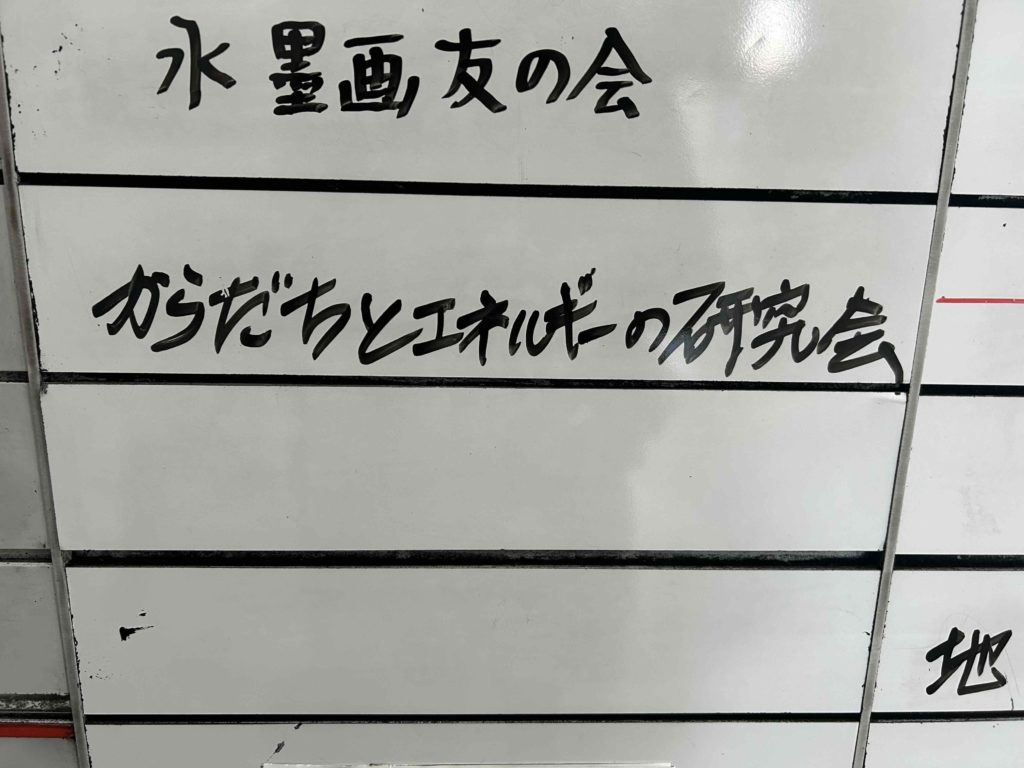 水墨画友の会
からだちとエネルギーの研究会
地